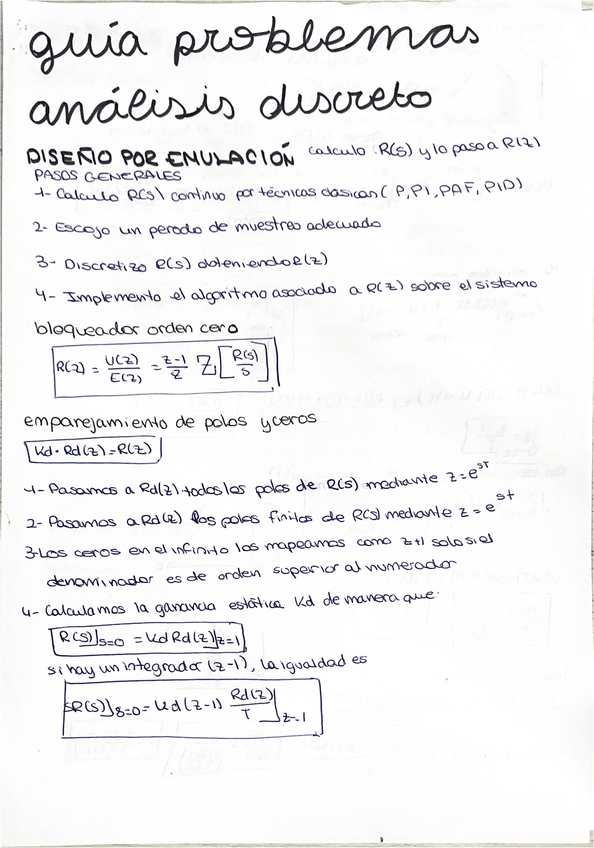 guía problemas
análisis discreto
DISEÑO POR EMULACIÓN calculo : R(s) y lo paso a R(z)
PASOS GENERALES
1- Calculo R(s) continuo por técnicas clasicas (P, PI, PAF, PID)
2- Escojo un periodo de muestreo adecuado
3- Discretizo R(s) obteniendo R(z)
4- Implemento el algoritmo asociado a R(z) sobre el sistema
bloqueador orden cero
R(z) = U(z)/E(z) = z-1/z Z[R(s)/s]
emparejamiento de polos y ceros
Kd · Rd(z) = R(z)
1- Pasamos a Rd(z) todos los polos de R(s) mediante z = e^sT
2- Pasamos a Rd(z) los polos finitos de R(s) mediante z = e^st
3- Los ceros en el infinito los mapeamos como z+1 solo si el
denominador es de orden superior al numerador
4- Calculamos la ganancia estática Kd de manera que:
R(s)]s=0 = Kd Rd(z)]z=1
si hay un integrador (z-1), la igualdad es
sR(s)]s=0 = Kd(z-1) Rd(z)/T]z=1